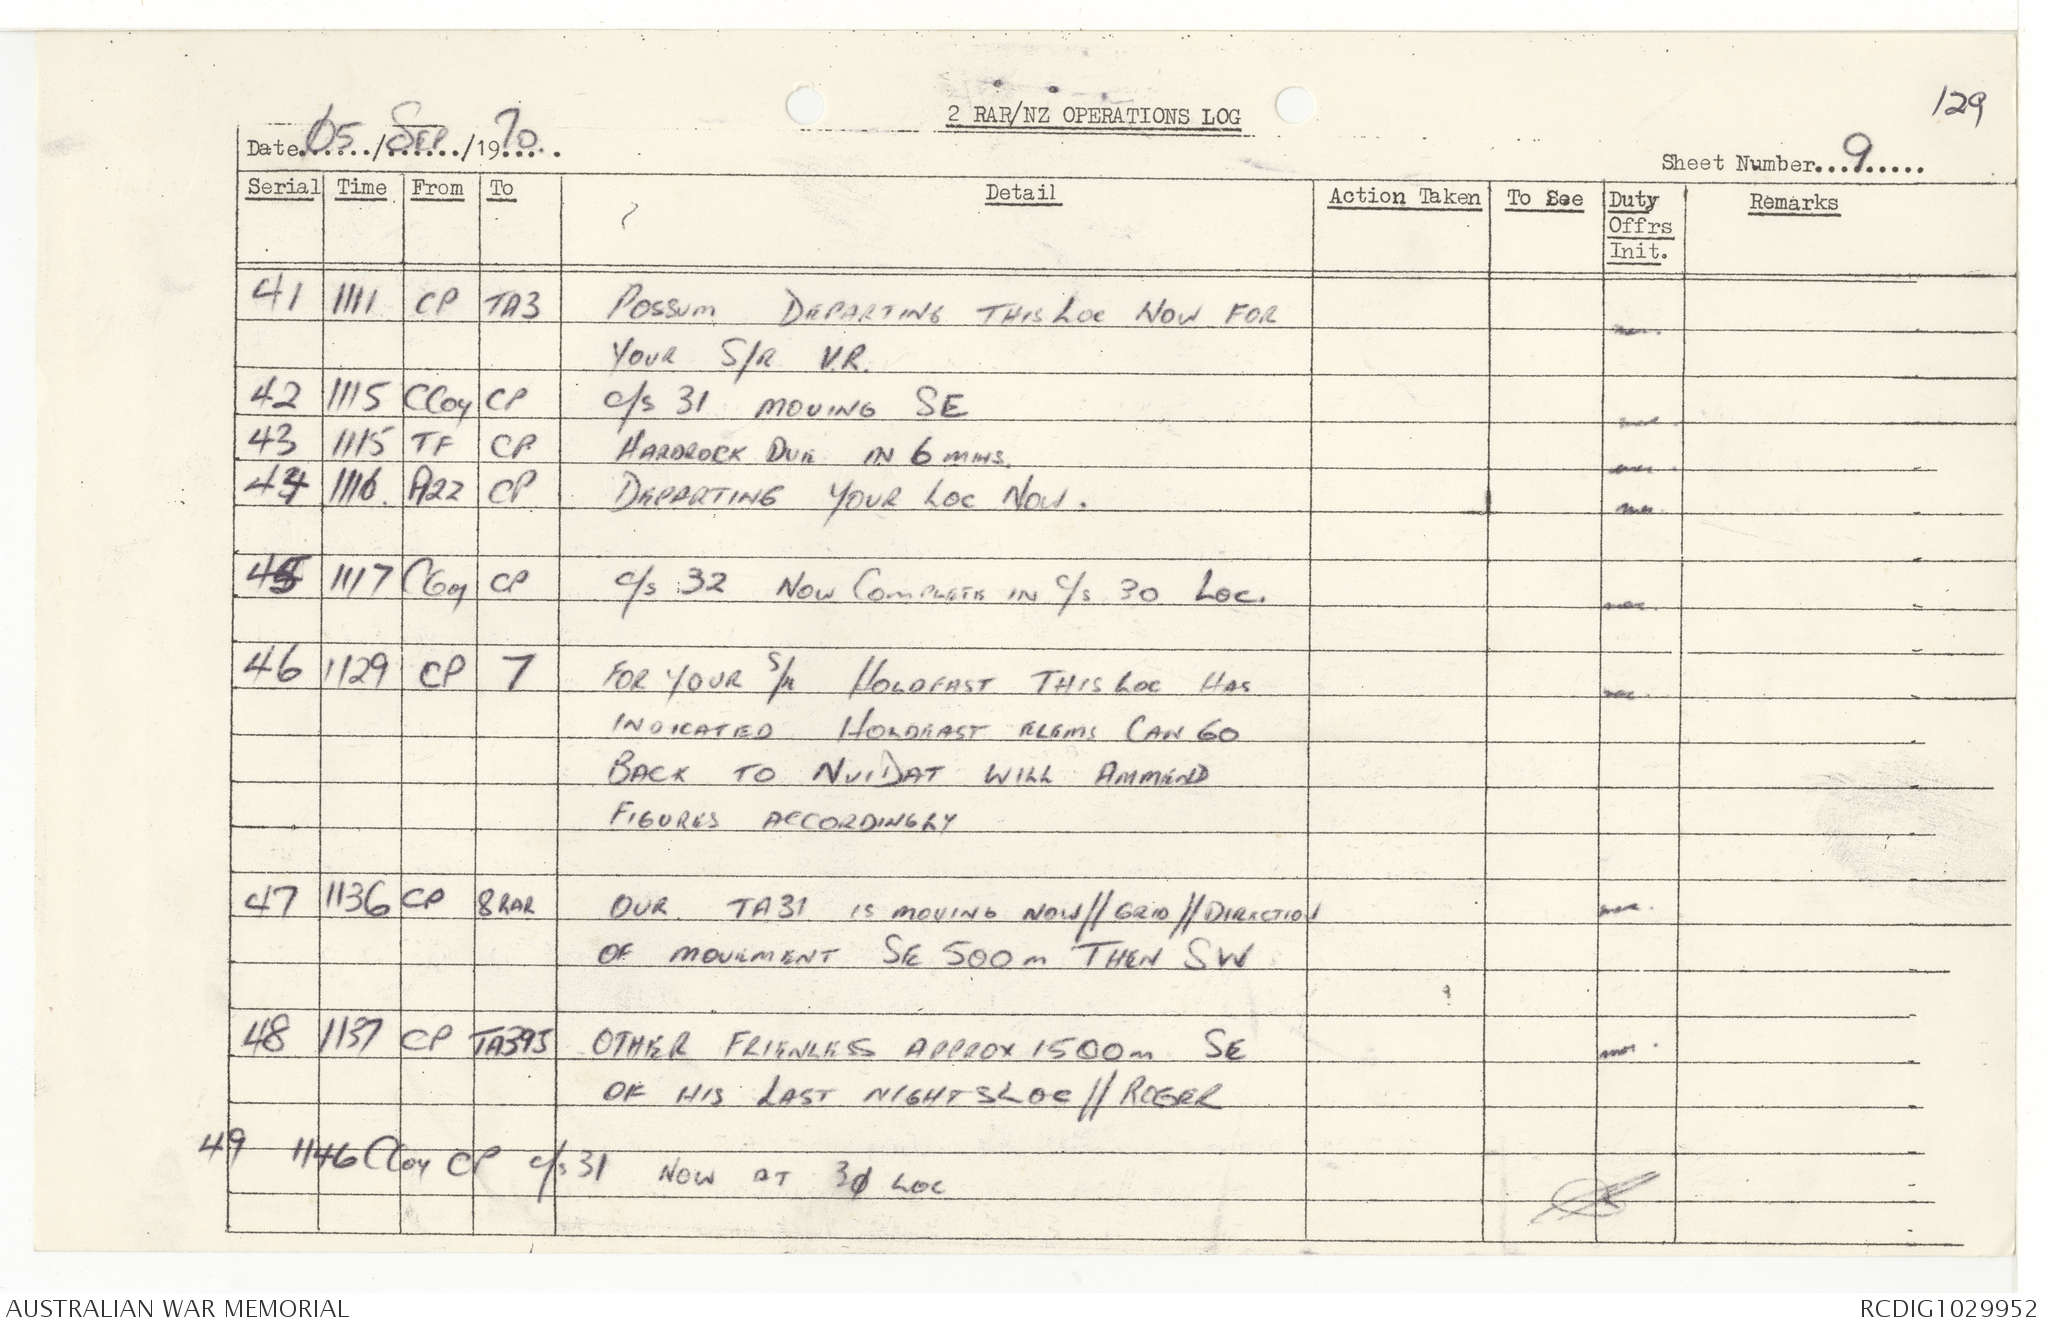 129
2 RAR/NZ OPERATIONS LOG
Date 05/SEP/1970
Sheet Number...9.....
Serial Time From To Detail Action Taken To See Duty Offrs Init. Remarks
41 1111 CP TA3 POSSUM DEPARTING THIS LOC NOW FOR
YOUR S/R V.R.
42 1115 CCoy CP c/s 31 MOVING SE
43 1115 TF CP HARDROCK DUE IN 6 MINS.
44 1116 A22 CP DEPARTING YOUR LOC NOW.
45 1117 CCoy CP c/s 32 NOW COMPLETE IN c/s 30 LOC.
46 1129 CP 7 FOR YOUR S/R HOLDFAST THIS LOC HAS
INDICATED HOLDFAST ELEMS CAN GO
BACK TO NUIDAT WILL AMMEND
FIGURES ACCORDINGLY
47 1136 CP 8RAR OUR TA31 IS MOVING NOW//GRID//DIRECTION
OF MOVEMENT SE 500m THEN SW
48 1137 CP TA393 OTHER FRIENLESS APPROX 1500m SE
OF HIS LAST NIGHTS LOC//ROGER
49 1146 CCoy CP c/s 31 NOW AT 30 LOC
AUSTRALIAN WAR MEMORIAL
RCDIG1029952